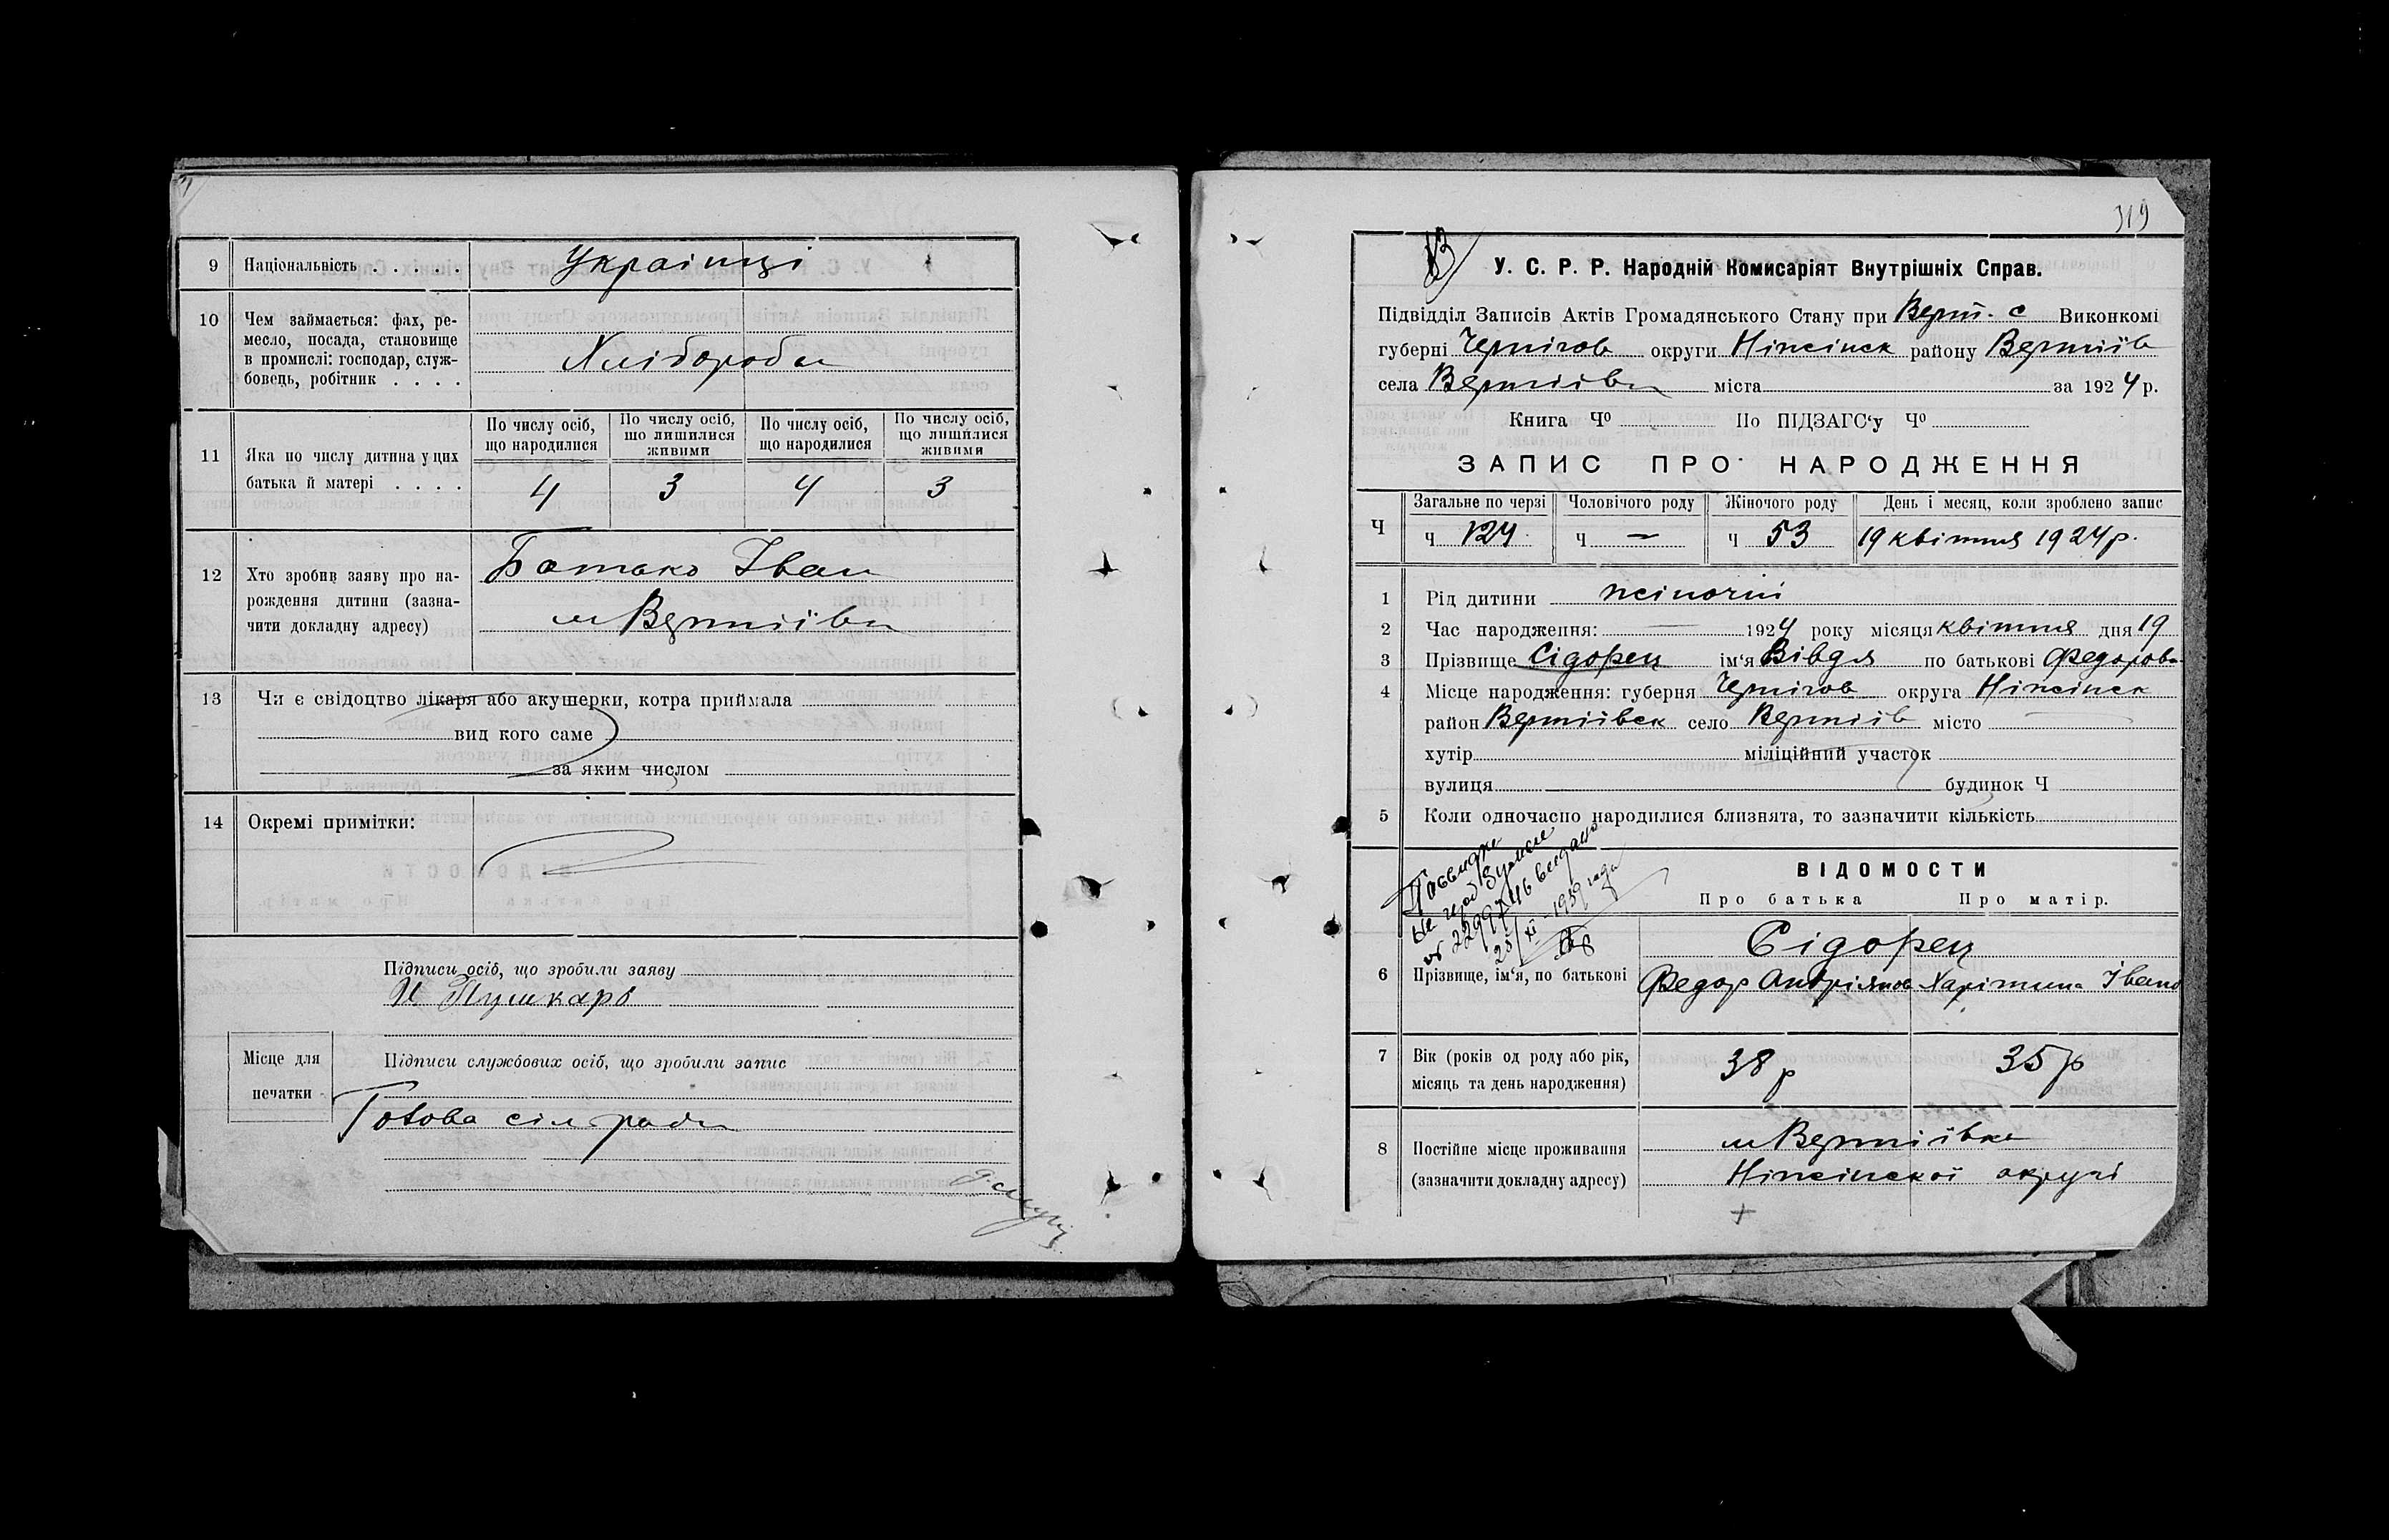 9 Національність . . . . . Украінці
10 Чем займається: фах, ре-
месло, посада, становище
в промислі: господар, служ-
бовець, робітник . . . . Хлібороби
11 Яка по числу дитина у цих
батька й матері . . . .
По числу осіб, що народилися
По числу осіб, що лишилися живими
По числу осіб, що народилися
По числу осіб, що лишилися живими
4 3 4 3
12 Хто зробив заяву про на-
рождення дитини (зазна-
чити докладну адресу)
Батько Іван
м Вертіївки
13 Чи є свідоцтво лікаря або акушерки, котра приймала
вид кого саме
за яким числом
14 Окремі примітки:
Підписи осіб, що зробили заяву
И Пушкарь
Місце для
печатки
Підписи службових осіб, що зробили запис
Голова сіл ради
319
У. С. Р. Р. Народній Комисаріят Внутрішніх Справ.
Підвідділ Записів Актів Громадянського Стану при Верт. с Виконкомі
губерні Чернігов округи Ніжінск району Вертіїв
села Вертіївки міста за 1924 р.
Книга Ч⁰ По ПІДЗАГС‘у Ч⁰
ЗАПИС ПРО НАРОДЖЕННЯ
Ч
Загальне по черзі Чоловічого роду Жіночого роду День і месяц, коли зроблено запис
Ч 124 Ч — Ч 53 19 квітня 1924 р.
1 Рід дитини жіночий
2 Час народження: — 1924 року місяця квітня дня 19
3 Прізвище Сідорец ім‘я Вівдя по батькові Федоров
4 Місце народження: губерня Чернігов округа Ніжінск
район Вертіївск село Вертіїв місто —
хутір міліційний участок
вулиця будинок Ч
5 Коли одночасно народилися близнята, то зазначити кількість
ВІДОМОСТИ
Про батька Про матір.
6 Прізвище, ім‘я, по батькові
Сідорец
Федор Андріянов Харітина Івано
7 Вік (років од роду або рік,
місяць та день народження)
38 р 35 р
8 Постійне місце проживання
(зазначити докладну адресу)
м Вертіївка
Ніжінскоі округі